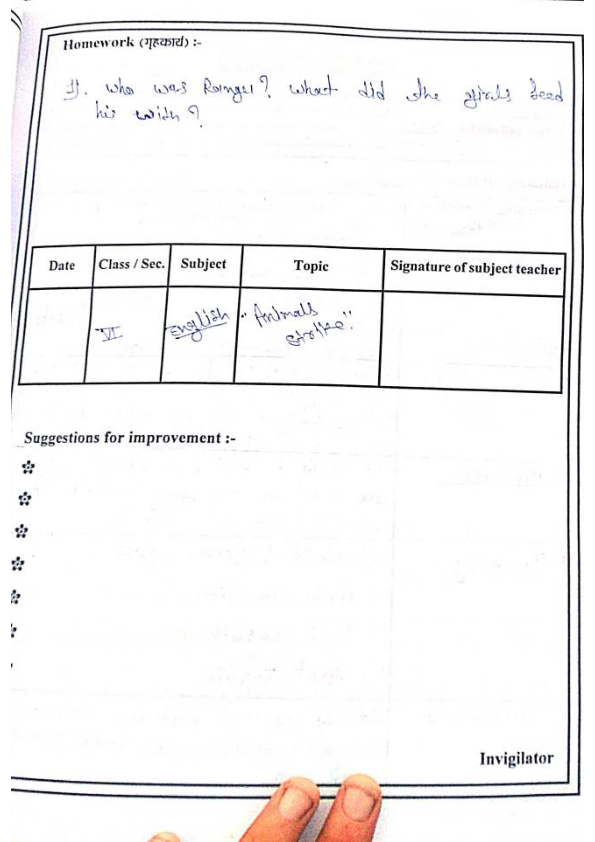 Homework (गृहकार्य) :-
1). who was Rangu? what did the girls feed
his with?
Date Class / Sec. Subject Topic Signature of subject teacher
VI English "Animals
strike".
Suggestions for improvement :-
Invigilator